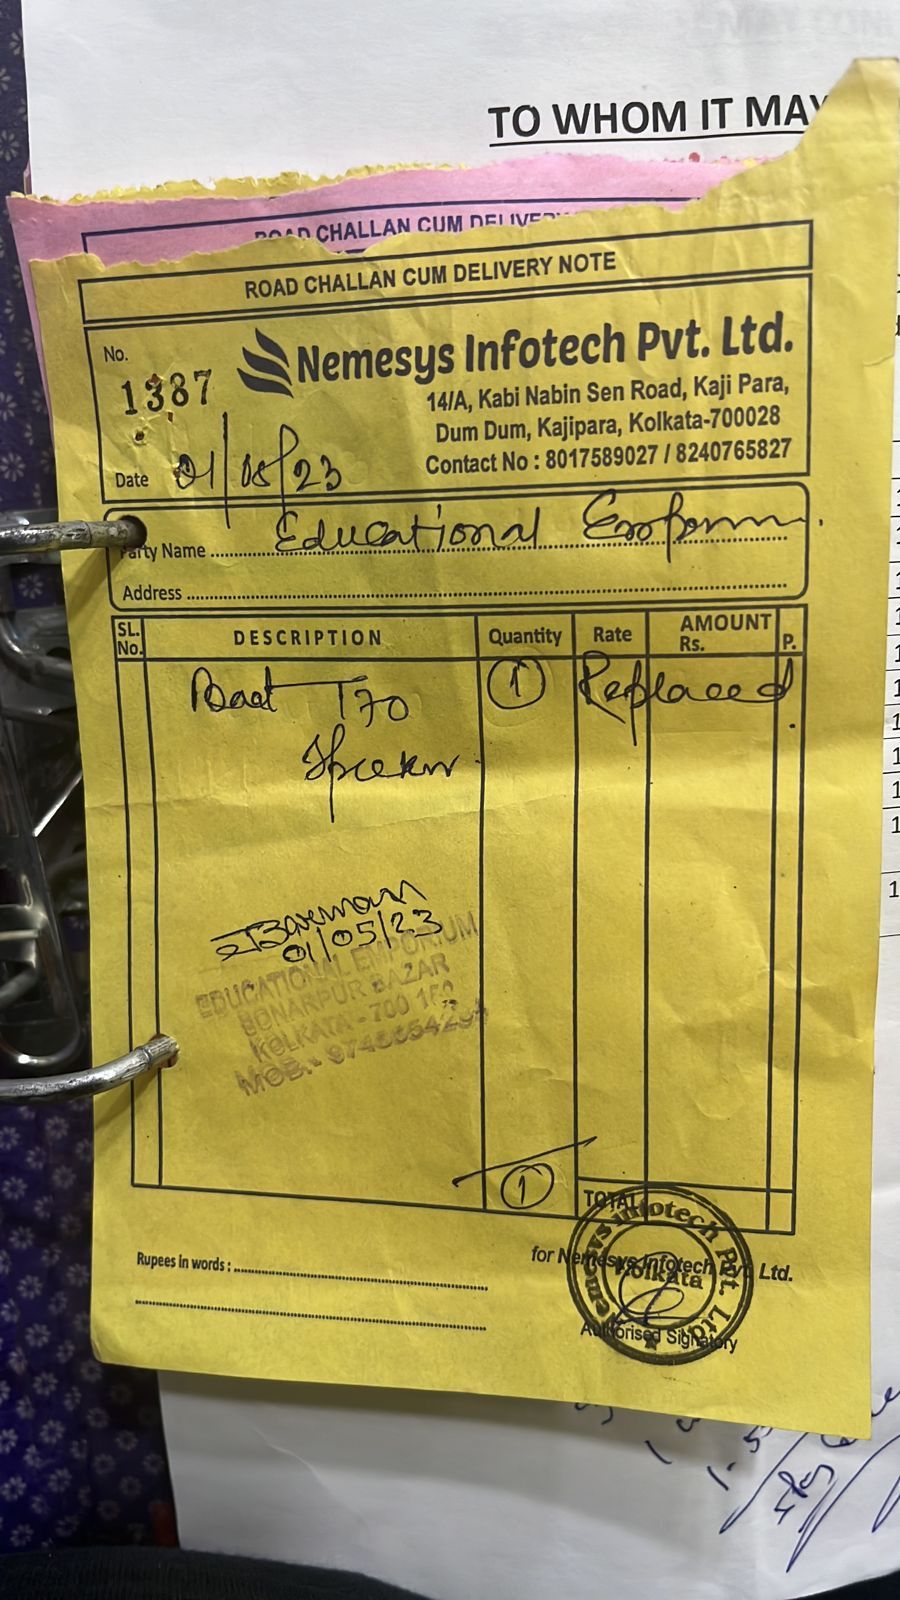 TO WHOM IT MAY
ROAD CHALLAN CUM DELIVERY
ROAD CHALLAN CUM DELIVERY NOTE
No.
1387
Nemesys Infotech Pvt. Ltd.
14/A, Kabi Nabin Sen Road, Kaji Para,
Dum Dum, Kajipara, Kolkata-700028
Contact No : 8017589027 / 8240765827
Date 01/05/23
Party Name Educational
Address
SL. No. DESCRIPTION Quantity Rate AMOUNT Rs. P.
T70 1 Replaced
01/05/23
EDUCATIONAL EMPORIUM
SONARPUR BAZAR
KOLKATA - 700
MOB.-
1
TOTAL
Rupees in words :
for Nemesys Infotech Pvt. Ltd.
Nemesys Infotech Pvt. Ltd.
Kolkata
Authorised Signatory